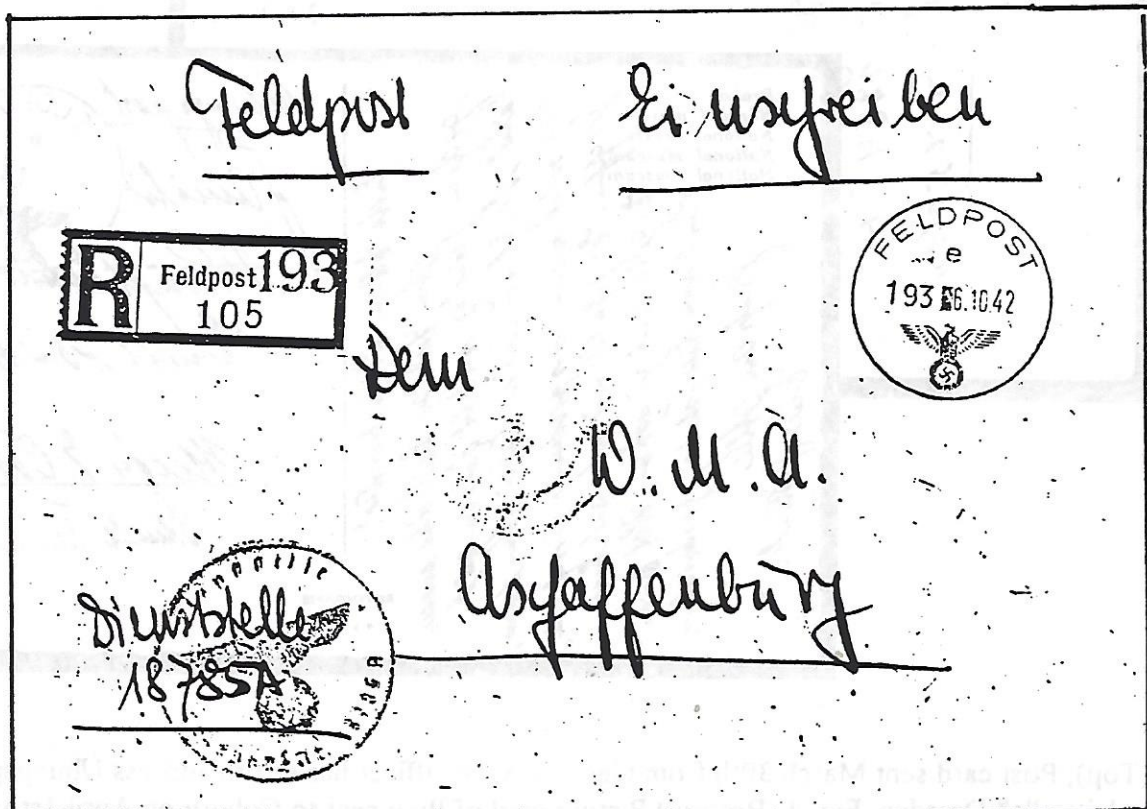 Feldpost Einschreiben
R Feldpost 193
105
FELDPOST
e
193 6.10.42
Dem
W. M. A.
Aschaffenburg
Dienststelle
18785A